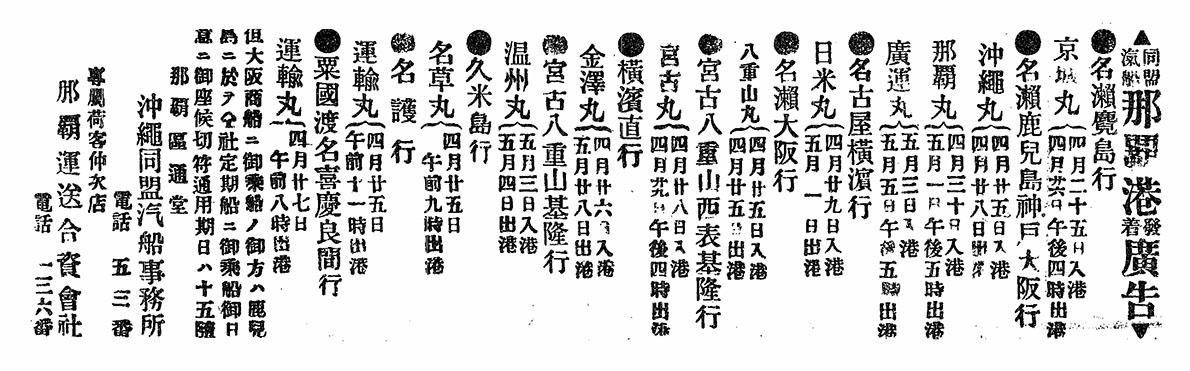 ▲同盟汽船那覇港發着廣告▼
●名瀬鹿兒島行
京城丸 四月二十五日入港
四月廿六日午後四時出港
●名瀬鹿兒島神戸大阪行
沖繩丸 四月廿五日入港
四月廿八日出港
那覇丸 四月三十日入港
五月一日午後五時出港
廣運丸 五月三日入港
五月五日午後五時出港
●名古屋横濵行
日米丸 四月廿九日入港
五月一日出港
●名瀬大阪行
八重山丸 四月廿五日入港
四月廿五日出港
●宮古八重山西表基隆行
宮古丸 四月廿八日入港
四月廿九日午後四時出港
●横濵直行
金澤丸 四月廿六日入港
五月廿八日出港
●宮古八重山基隆行
温州丸 五月三日入港
五月四日出港
●久米島行
名草丸 四月廿五日
午前九時出港
●名護行
運輸丸 四月廿五日
午前十一時出港
●粟國渡名喜慶良間行
運輸丸 四月廿七日
午前八時出港
但大阪商船ニ御乘船ノ御方ハ鹿兒
島ニ於テ仝社定期船ニ御乘船御日
意ニ御座候切符通用期日ハ十五
那覇區通堂
沖繩同盟汽船事務所
電話 五三番
專屬荷客仲次店
那覇運送合資會社
電話 一二三六番